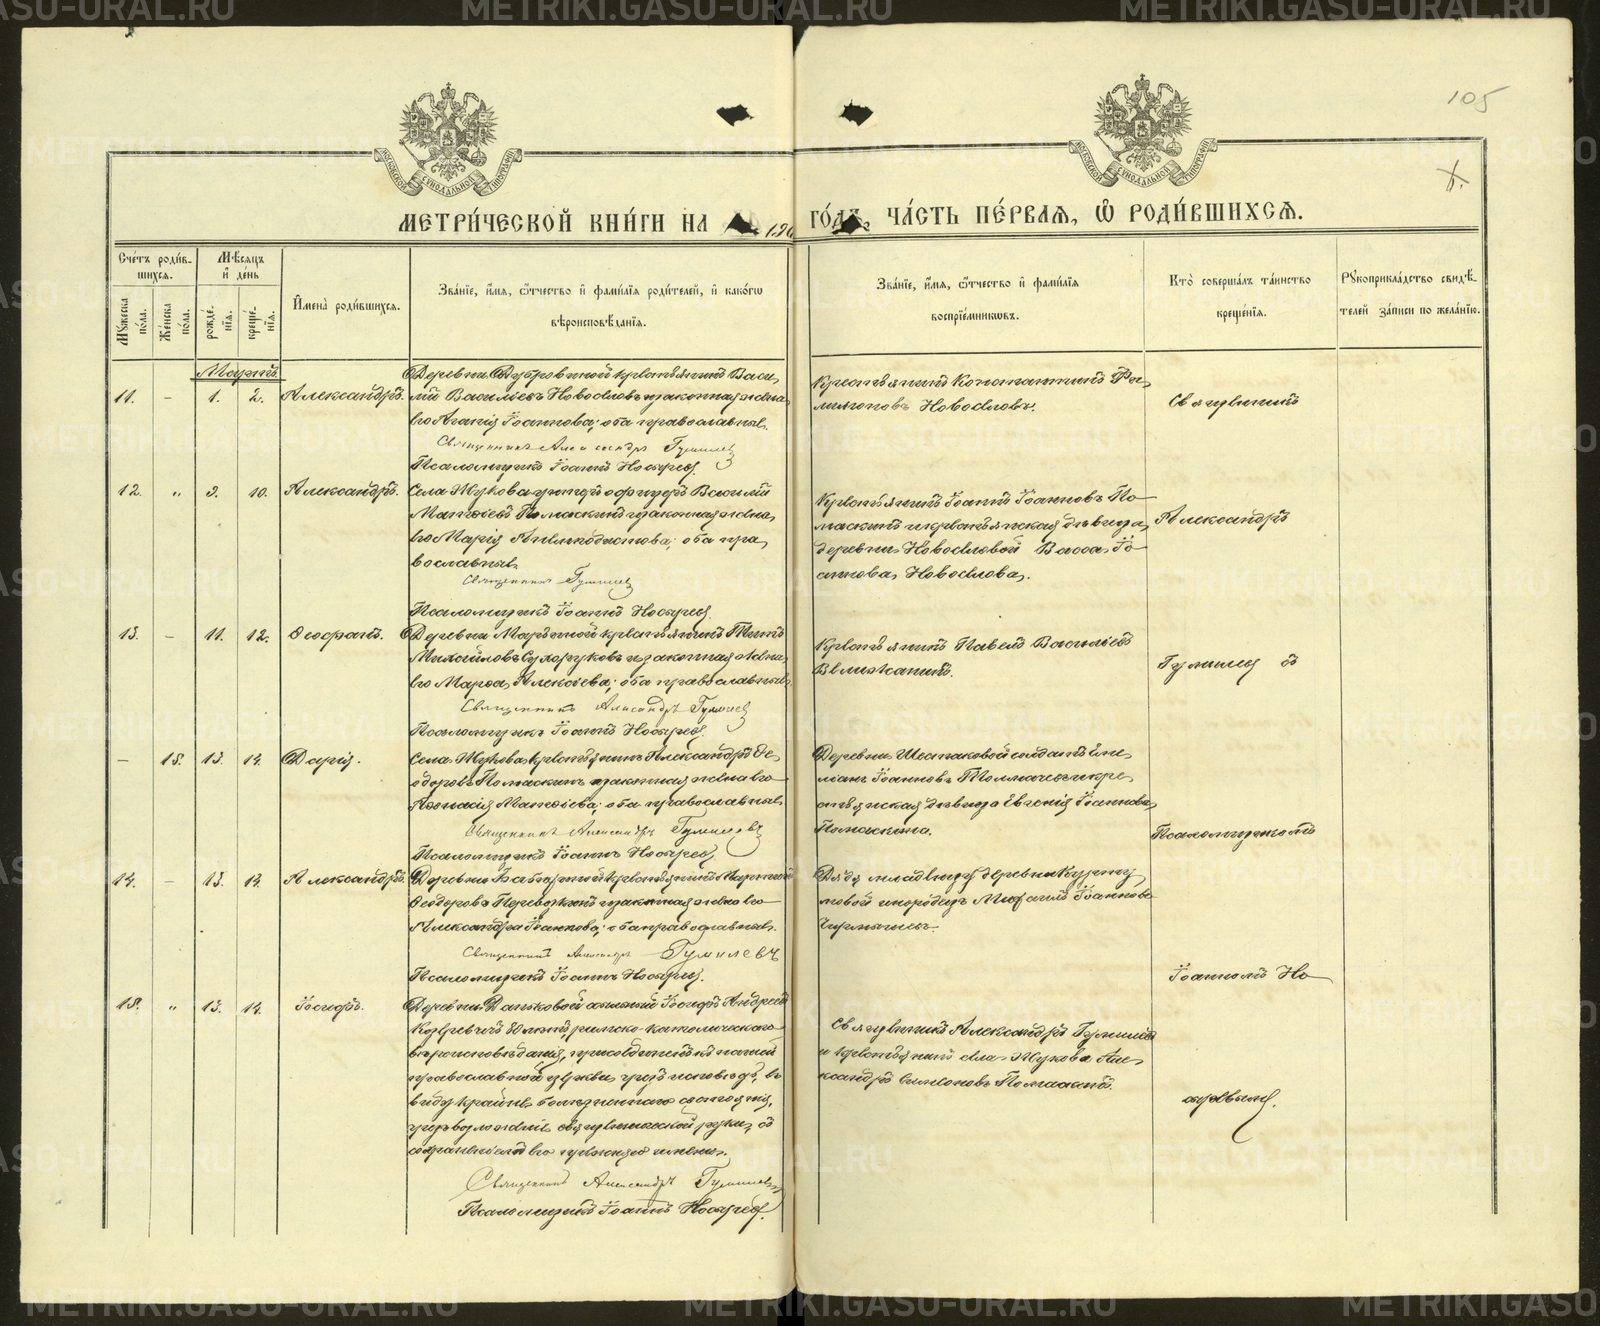 METRIKI.GASU-URAL.RU
105
МОСКОВСКОЙ СѴНОДАЛЬНОЙ ТИПОГРАФІИ
МОСКОВСКОЙ СѴНОДАЛЬНОЙ ТИПОГРАФІИ
МЕТРИ́ЧЕСКОЙ КНИ́ГИ НА 190 ГО́ДЪ, ЧА́СТЬ ПЕ́РВАѦ, Ѡ҆ РОДИ́ВШИХСѦ.
Сче́тъ роди́вшихсѧ.
Му́жеска по́ла.
Же́нска по́ла.
Мѣ́сѧцъ и҆ де́нь
рожде́нїѧ.
креще́нїѧ.
И҆мена̀ роди́вшихсѧ.
Зва́нїе, и҆́мѧ, ѻ҆́тчество и҆ фами́лїѧ роди́телей, и҆ како́гѡ
вѣроисповѣ́данїѧ.
Зва́нїе, и҆́мѧ, ѻ҆́тчество и҆ фами́лїѧ
воспрїе́мникѡвъ.
Кто̀ соверша́лъ та́инство
креще́нїѧ.
Рꙋкоприкла́дство свидѣ́-
телей за́писи по жела́нїю.
Мартъ.
11. - 1. 2. Александръ.
Деревни Дубровной крестьянинъ Васи
лій Васильевъ Новоселовъ и законная жена
его Агапія Іоаннова; оба православные.
Священникъ Александръ Гумилев
Псаломщикъ Іоаннъ Носырев.
Крестьянинъ Константинъ Фи
лимоновъ Новоселовъ.
Священникъ
12. " 9. 10. Александръ.
Села Жукова унтеръ офицеръ Василій
Матѳеевъ Помаскинъ и законная жена
его Марія Анемподистова; оба пра
вославные.
Священникъ Гумилев
Псаломщикъ Іоаннъ Носырев.
Крестьянинъ Іоаннъ Іоанновъ По
маскинъ и крестьянская дѣвица
деревни Новоселовой Васса Іо
аннова Новоселова.
Александръ
13. - 11. 12. Ѳеофанъ.
Деревни крестьянинъ Титъ
Михайловъ Сухоруковъ и законная жена
его Марѳа Алексѣева; оба православные.
Священникъ Александръ Гумилев
Псаломщикъ Іоаннъ Носырев.
Крестьянинъ Павелъ Васильевъ
Велижанинъ.
Гумилев съ
- 15. 13. 14. Дарія.
Села Жукова крестьянинъ Александръ Ѳе
одоровъ Помаскинъ и законная жена его
Аѳанасія Матѳеева; оба православные.
Священникъ Александръ Гумилевъ
Псаломщикъ Іоаннъ Носырев.
Деревни Шестаковой солдатъ Еме
льянъ Іоанновъ Толмачевъ и кре
стьянская дѣвица Евгенія Іоаннова
Помаскина.
Псаломщикомъ
14. - 13. 14. Александръ.
Деревни крестьянинъ
Ѳеодоровъ и законная жена его
Александра Іоаннова; оба православные.
Священникъ Александръ Гумилевъ
Псаломщикъ Іоаннъ Носырев.
Дядя младенца деревни
инородецъ Михаилъ Іоанновъ
Іоанномъ Но
15. " 13. 14. Іосифъ.
Деревни Даньковой ссыльный Іосифъ Андреев
80 лѣтъ римско-католическаго
вѣроисповѣданія, присоединенъ къ нашей
православной церкви, чрезъ исповѣдь, въ
виду крайне болѣзненнаго состоянія,
чрезъ возложеніе священнической руки, съ
сохраненіемъ его прежняго имени.
Священникъ Александръ Гумилев
Псаломщикъ Іоаннъ Носырев.
Священникъ Александръ Гумилев
и крестьянинъ села Жукова Але
ксандръ Симеоновъ Помаскинъ.
сыревым.